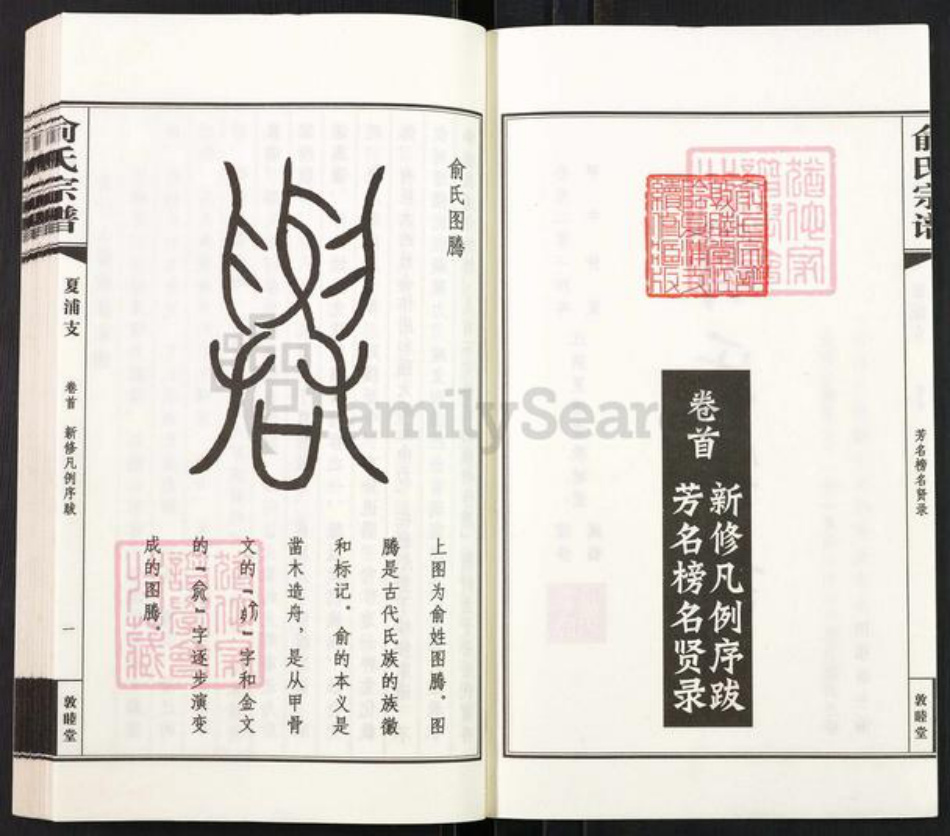 俞氏宗谱
芳名榜名贤录
敦睦堂
俞氏宗谱
敦睦堂江
阴夏浦支
续修恒版
卷首
新修凡例序跋
芳名榜名贤录
FamilySearch
俞氏图腾
上图为俞姓图腾。图
腾是古代氏族的族徽
和标记。俞的本义是
凿木造舟，是从甲骨
文的“”字和金文
的“俞”字逐步演变
成的图腾。
俞氏宗谱
夏浦支
卷首
新修凡例序跋
一
敦睦堂